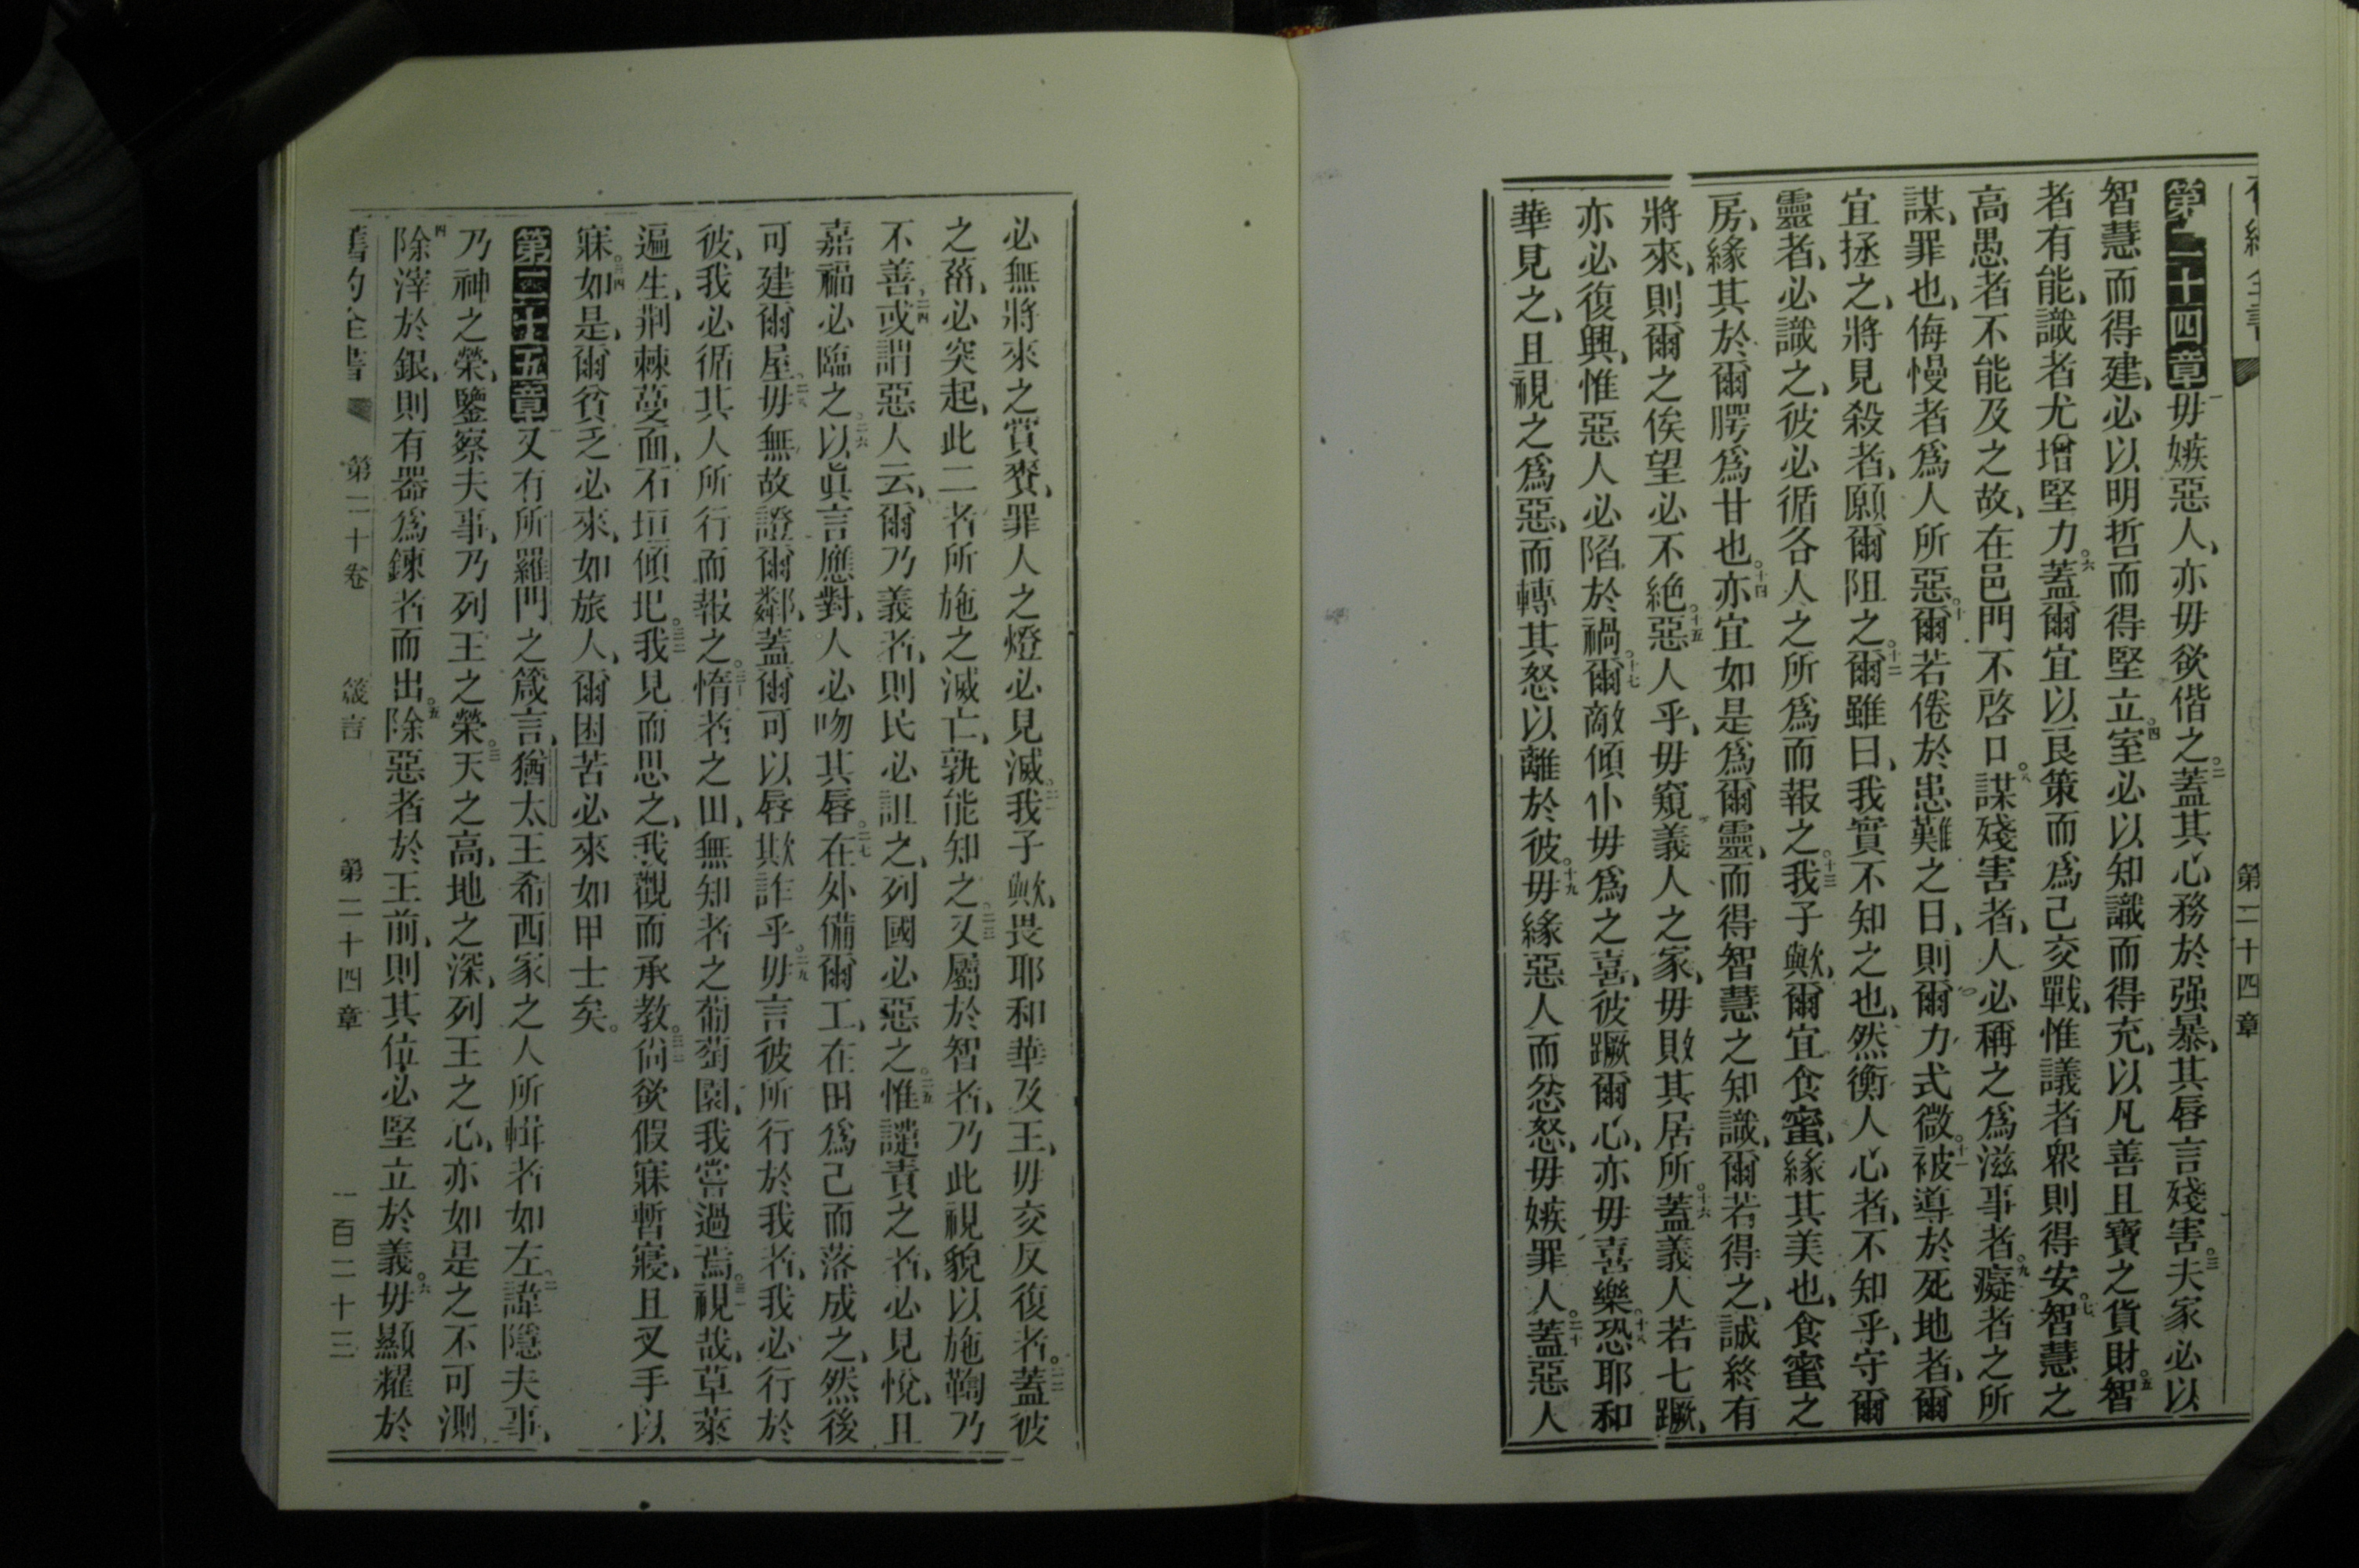 第二十四章
第二十四章一毋嫉惡人、亦毋欲偕之。二蓋其心務於强暴、其唇言殘害。三夫家必以
智慧而得建、必以明哲而得堅立。四室必以知識而得充、以凡善且寶之貨財。五智
者有能、識者尤增堅力。六蓋爾宜以良策而爲己交戰、惟議者衆則得安。七智慧之
高愚者不能及之故、在邑門不啓口。八謀殘害者、人必稱之爲滋事者。九癡者之所
謀、罪也、侮慢者爲人所惡。十爾若倦於患難之日、則爾力式微。十一被導於死地者、爾
宜拯之、將見殺者、願爾阻之。十二爾雖曰、我實不知之也、然衡人心者、不知乎、守爾
靈者、必識之、彼必循各人之所爲而報之。十三我子歟、爾宜食蜜、緣其美也、食蜜之
房、緣其於爾腭爲甘也。十四亦宜如是爲爾靈、而得智慧之知識、爾若得之、誠終有
將來、則爾之俟望必不絶。十五惡人乎、毋窺義人之家、毋敗其居所。十六蓋義人若七蹶、
亦必復興、惟惡人必陷於禍。十七爾敵傾仆毋爲之喜、彼蹶爾心、亦毋喜樂。十八恐耶和
華見之、且視之爲惡、而轉其怒以離於彼。十九毋緣惡人而忿怒、毋嫉罪人。二十蓋惡人
必無將來之賞賚、罪人之燈必見滅。二一我子歟、畏耶和華及王、毋交反復者。二二蓋彼
之菑、必突起、此二者所施之滅亡、孰能知之。二三又屬於智者、乃此視貌以施鞫乃
不善。二四或謂惡人云、爾乃義者、則民必詛之、列國必惡之。二五惟譴責之者、必見悅、且
嘉福必臨之。二六以眞言應對、人必吻其唇。二七在外備爾工、在田爲己而落成之、然後
可建爾屋。二八毋無故證爾鄰、蓋爾可以唇欺詐乎。二九毋言彼所行於我者、我必行於
彼、我必循其人所行而報之。三十惰者之田、無知者之葡萄園、我嘗過焉。三一視哉、草萊
遍生、荆棘蔓面、石垣傾圯。三二我見而思之、我觀而承教。三三尙欲假寐暫寢、且叉手以
寐。三四如是、爾貧乏必來、如旅人、爾困苦必來如甲士矣。
第二十五章一又有所羅門之箴言、猶太王希西家之人所輯者如左。二諱隱夫事、
乃神之榮、鑒察夫事、乃列王之榮。三天之高、地之深、列王之心、亦如是之不可測
四除滓於銀、則有器爲鍊者而出。五除惡者於王前、則其位必堅立於義。六毋顯耀於
舊約全書 第二十卷 箴言 第二十四章 一百二十三